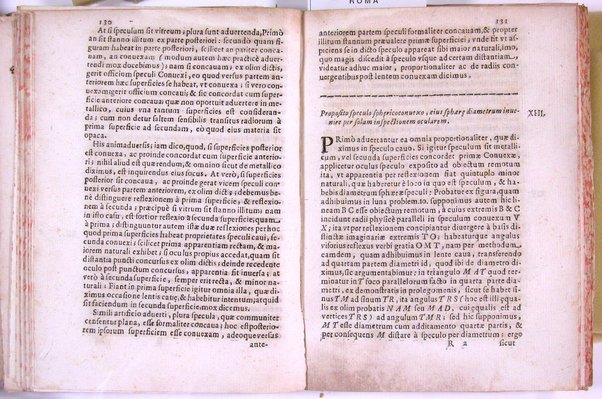 ROMA
130
At si speculum sit vitreum, plura sunt aduertenda, Primò
an sit illitum stannum ex parte posteriori: secundò quam si-
guram habeat in parte posteriori, scilicet an pariter conca-
nam, an conuexam (modum autem hæc practicè aduert-
endi mox docebimus) nam si concauam; ex olim dictis,
gerit officium speculi Conuexi, eo quod versus partem an-
teriorem hæc superficies se habeat, vt conuexa; si verò con-
uexam gerit officium concaui & sic concordat cum super-
ficie anteriore concaua: quæ non oportuit aduertere in me-
tallico, cuius vna tantum superficies est consideran-
da; cum non detur saltem sensibilis transitus radiorum à
prima superficie ad secundam, eò quod eius materia sit
opaca.
His animaduersis; iam dico, quod, si superficies posterior
est conuexa, ac proinde concordat cum superficie
anteriori; nihil aliud est quærendum, & omnino sicut de metallico
diximus, est inquirendus eius focus. At verò, si superficies
posterior sit concaua, ac proinde gerat vicem speculi con-
uexi versus partem anteriorem, ex olim dictis; debemus be-
nè distinguere reflexionem à prima superficie, & reflexio-
nem à secunda; præcipuè si vitrum sit stannum illitum nam
in isto casu, est fortior reflexio à secunda superficie; quam
à prima; distinguuntur autem istæ duæ reflexiones per hoc
quod prima superficies habet proprietates speculi caui, secun-
da conuexi; scilicet prima apparentiam rectam, & ma-
iorem naturali exhibet; si oculus propius accedat, quam sit
distantia puncti concursus ex olim dictis; deinde recedente
oculo post punctum concursus, apparentia fit inuersa; at
verò à secunda superficie, semper erit recta, & minor na-
turali: Fiant in prima superficie igitur omnia illa, quæ di-
ximus occasione lentis cauæ, & habebitur intentum, atquid-
sit faciendum in secunda superficie mox dicemus.
Simili artificio aduerti, plura specula, quæ communiter
censentur plana, esse formaliter concaua; hoc est posterio-
rem ipsorum superficiem esse conuexam, adeoque versus
ante-
131
anteriorem partem speculi formaliter concauam, & propter
illitum stannum præualere primæ superficiei; vnde fit vt as-
piciens se in dicto speculo appareat sibi maior naturali, imo,
quo magis discedit à speculo vsque ad certam distantiam,
videatur adhuc maior, proportionaliter ac de radijs con-
uergentibus post lentem conuexam dicimus.
Proposito speculo sphæricoconuexo, eius sphæræ diametrum inue-
nire per solam inspectionem ocularem.
XIII.
PRimò aduertantur ea omnia proportionaliter, quæ di-
ximus in speculo cauo. Si igitur speculum sit metalli-
cum, vel secunda superficies concorder primæ Conuexæ,
applicetur oculus speculo exposito ad obiectum remotum
ita, vt appareat per reflexionem fiat quadruplo minor
naturali, quæ habetur è loco in quo est speculum, & ha-
bebis diametrum sphæræ speculi: Probatur ex figura, quam
adhibuimus in luna problem. 10. supponimus autem hic lu-
neam B C esse obiectum remotum, à cuius extremis B & C
incidunt radij physicè paralleli in speculum conuexum V
X; ita vt per reflexionem concipiantur diuergere à basis di-
stinctæ imaginariæ extremis TO; habeaturque angulus
visorius reflexus verbi gratia OMT, nam per methodum
camdem, quam adhibuimus in lente caua, transferendo
ad quartam partem diametri id, quod ibi de diametro dixi-
mus, sic argumentabimur: in triangulo MAT quod ter-
minatur in T foco parallelorum facto in quarta parte dia-
metri, ex demonstratis in prolegomenis, sicut se habet si-
nus TM ad sinum TR, ita angulus TRS (hoc est illi equa-
lis ex olim probatis NAM seu MAD, cui equalis est ad
vertices TRS) ad angulum TMR; sed hic supponimus,
MT esse diametrum cum additamento quartæ partis, &
per consequens M distare à speculo per diametrum: ergo
R 2
sicut